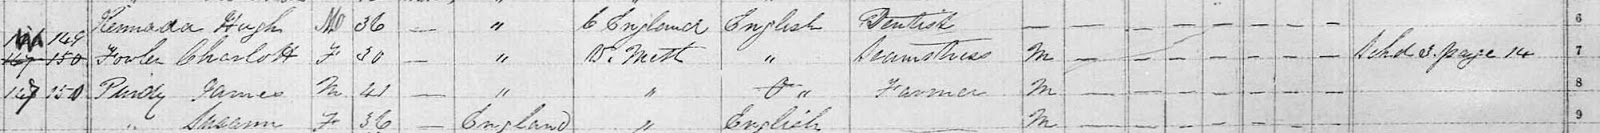 149 Kennada Hugh M 36 — " C England English Dentist — — — — — — — — — 6
150 Fowler Charlott F 30 — " W. Meth " Seamstress M — — — — — — — — Schd 3. page 14 7
147 151 Purdy James M 41 — " " " Farmer M — — — — — — — — 8
" Susann F 36 — England " English — M — — — — — — — — 9